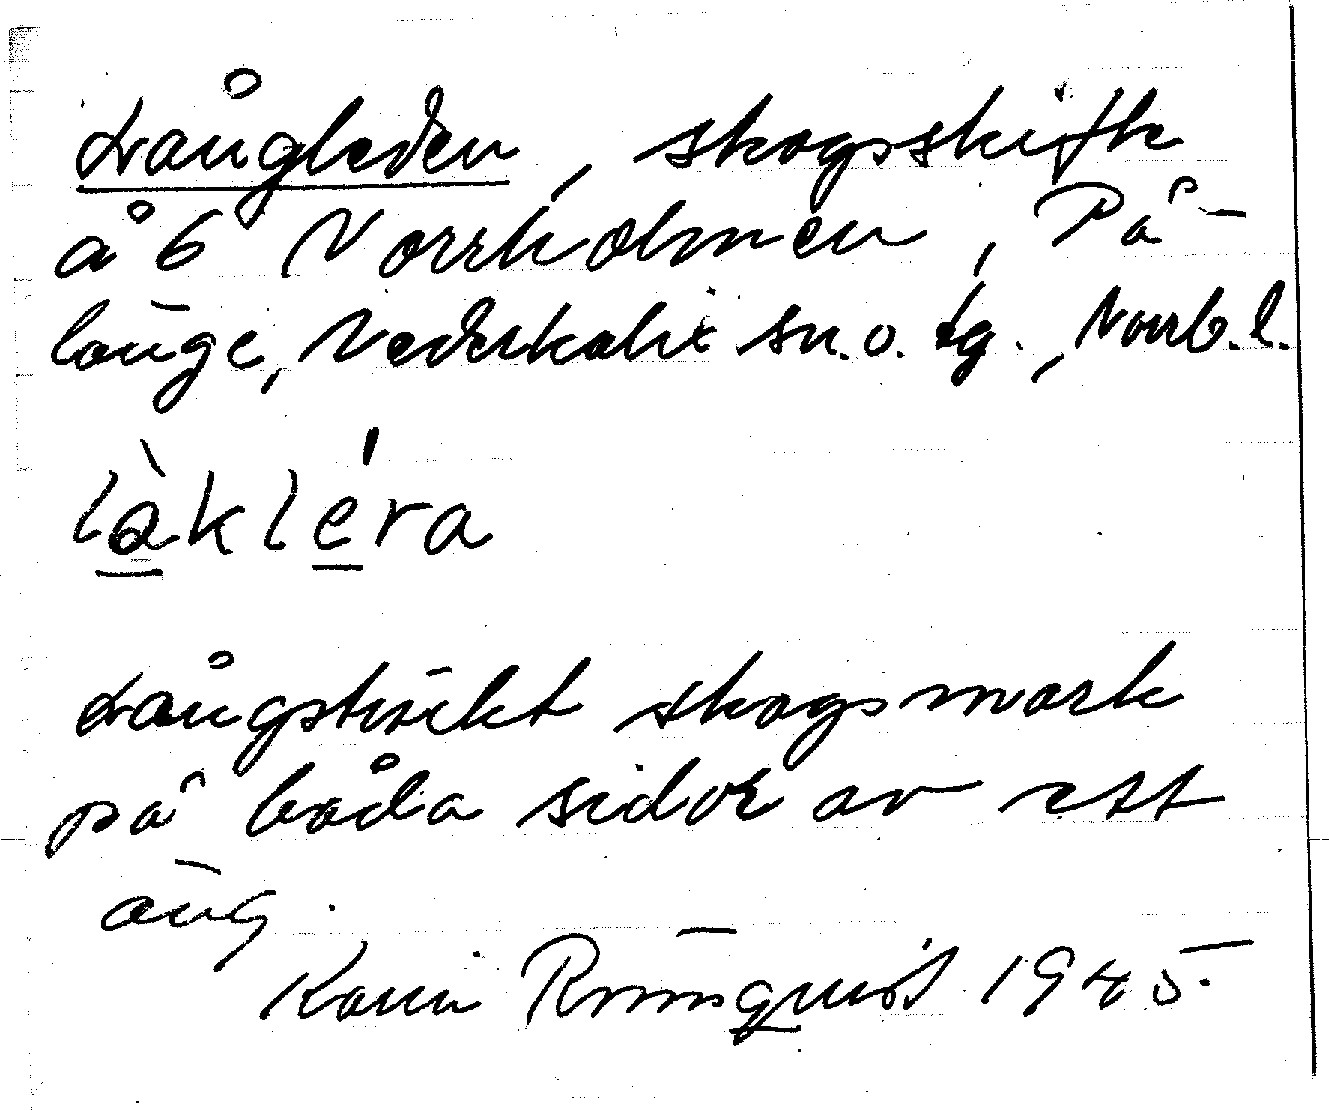 Långleden, skogsskifte
å 6 Norrholmen, På-
länge, Nederkalix sn. o. tg., Norrb. l.
làkléra
Långsträckt skogsmark
på båda sidor av ett
äng.
Karin Rönnquist 1945.